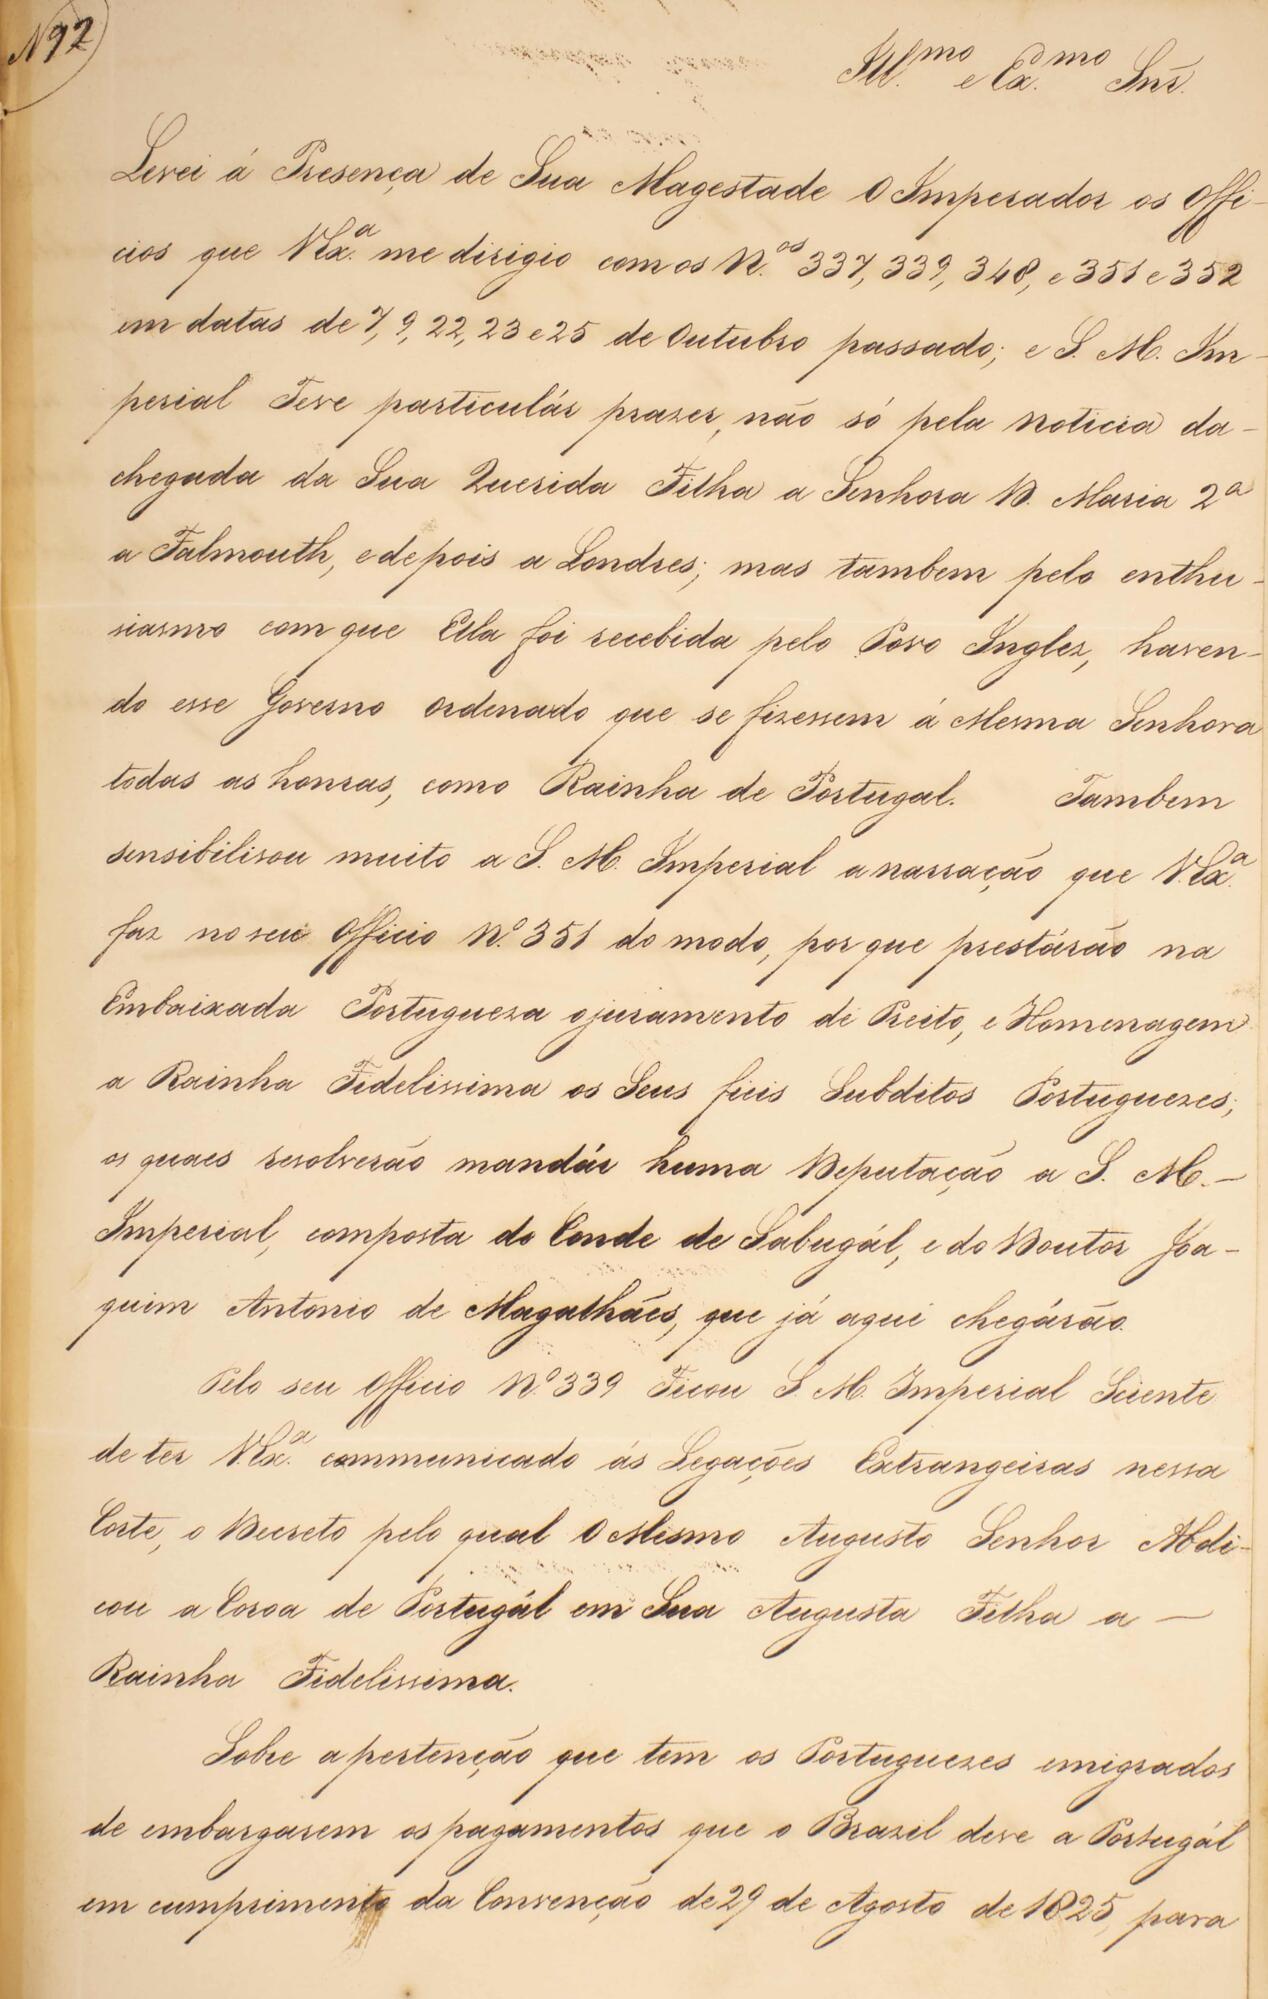 N 92
Ill.mo e Ex.mo Snr.
Levei á Presença de Sua Magestade O Imperador os Offi-
cios que V.Ex.a me dirigio com os N.os 337, 339, 348, e 351 e 352
em datas de 7, 9, 22, 23 e 25 de Outubro passado; e S. M. Im-
perial Teve particulár prazer, não só pela noticia da-
chegada da Sua Querida Filha a Senhora D. Maria 2a
a Falmouth, e depois a Londres; mas tambem pelo enthu-
siasmo com que Ella foi recebida pelo Povo Inglez, haven-
do esse Governo ordenado que se fizessem á Mesma Senhora
todas as honras, como Rainha de Portugal. Tambem
sensibilisou muito a S. M. Imperial a narração que V.Ex.a
faz no seu Officio N.o 351 do modo, por que prestárão na
Embaixada Portugueza o juramento de Preito, e Homenagem
a Rainha Fidelissima os Seus fieis Subditos Portuguezes;
os quaes resolverão mandár huma Deputação a S. M. -
Imperial, composta do Conde de Sabugál, e do Doutor Joa-
quim Antonio de Magalhães, que já aqui chegárão.
Pelo seu Officio N.o 339 Ficou S. M. Imperial Sciente
de ter V.Ex.a communicado ás Legações Extrangeiras nessa
Corte, o Decreto pelo qual O Mesmo Augusto Senhor Abdi-
cou a Coroa de Portugál em Sua Augusta Filha a -
Rainha Fidelissima.
Sobre a pertenção que tem os Portuguezes emigrados
de embargarem os pagamentos que o Brazil deve a Portugál
em cumprimento da Convenção de 29 de Agosto de 1825, para